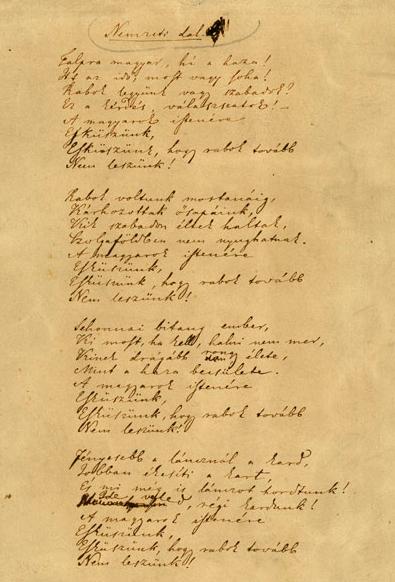 Nemzeti dal
Talpra magyar, hí a haza!
Itt az idő, most vagy soha!
Rabok legyünk vagy szabadok?
Ez a kérdés, válaszszatok! –
A magyarok istenére
Esküszünk,
Esküszünk, hogy rabok tovább
Nem leszünk!
Rabok voltunk mostanáig,
Kárhozottak ősapáink,
Kik szabadon éltek haltak,
Szolgaföldben nem nyughatnak.
A magyarok istenére
Esküszünk,
Esküszünk, hogy rabok tovább
Nem leszünk!
Sehonnai bitang ember,
Ki most, ha kell, halni nem mer,
Kinek drágább rongy élete,
Mint a haza becsülete.
A magyarok istenére
Esküszünk,
Esküszünk, hogy rabok tovább
Nem leszünk!
Fényesebb a láncznál a kard,
Jobban ékesíti a kart,
És mi még is lánczot hordtunk!
Ide veled, régi kardunk!
A magyarok istenére
Esküszünk,
Esküszünk, hogy rabok tovább
Nem leszünk!